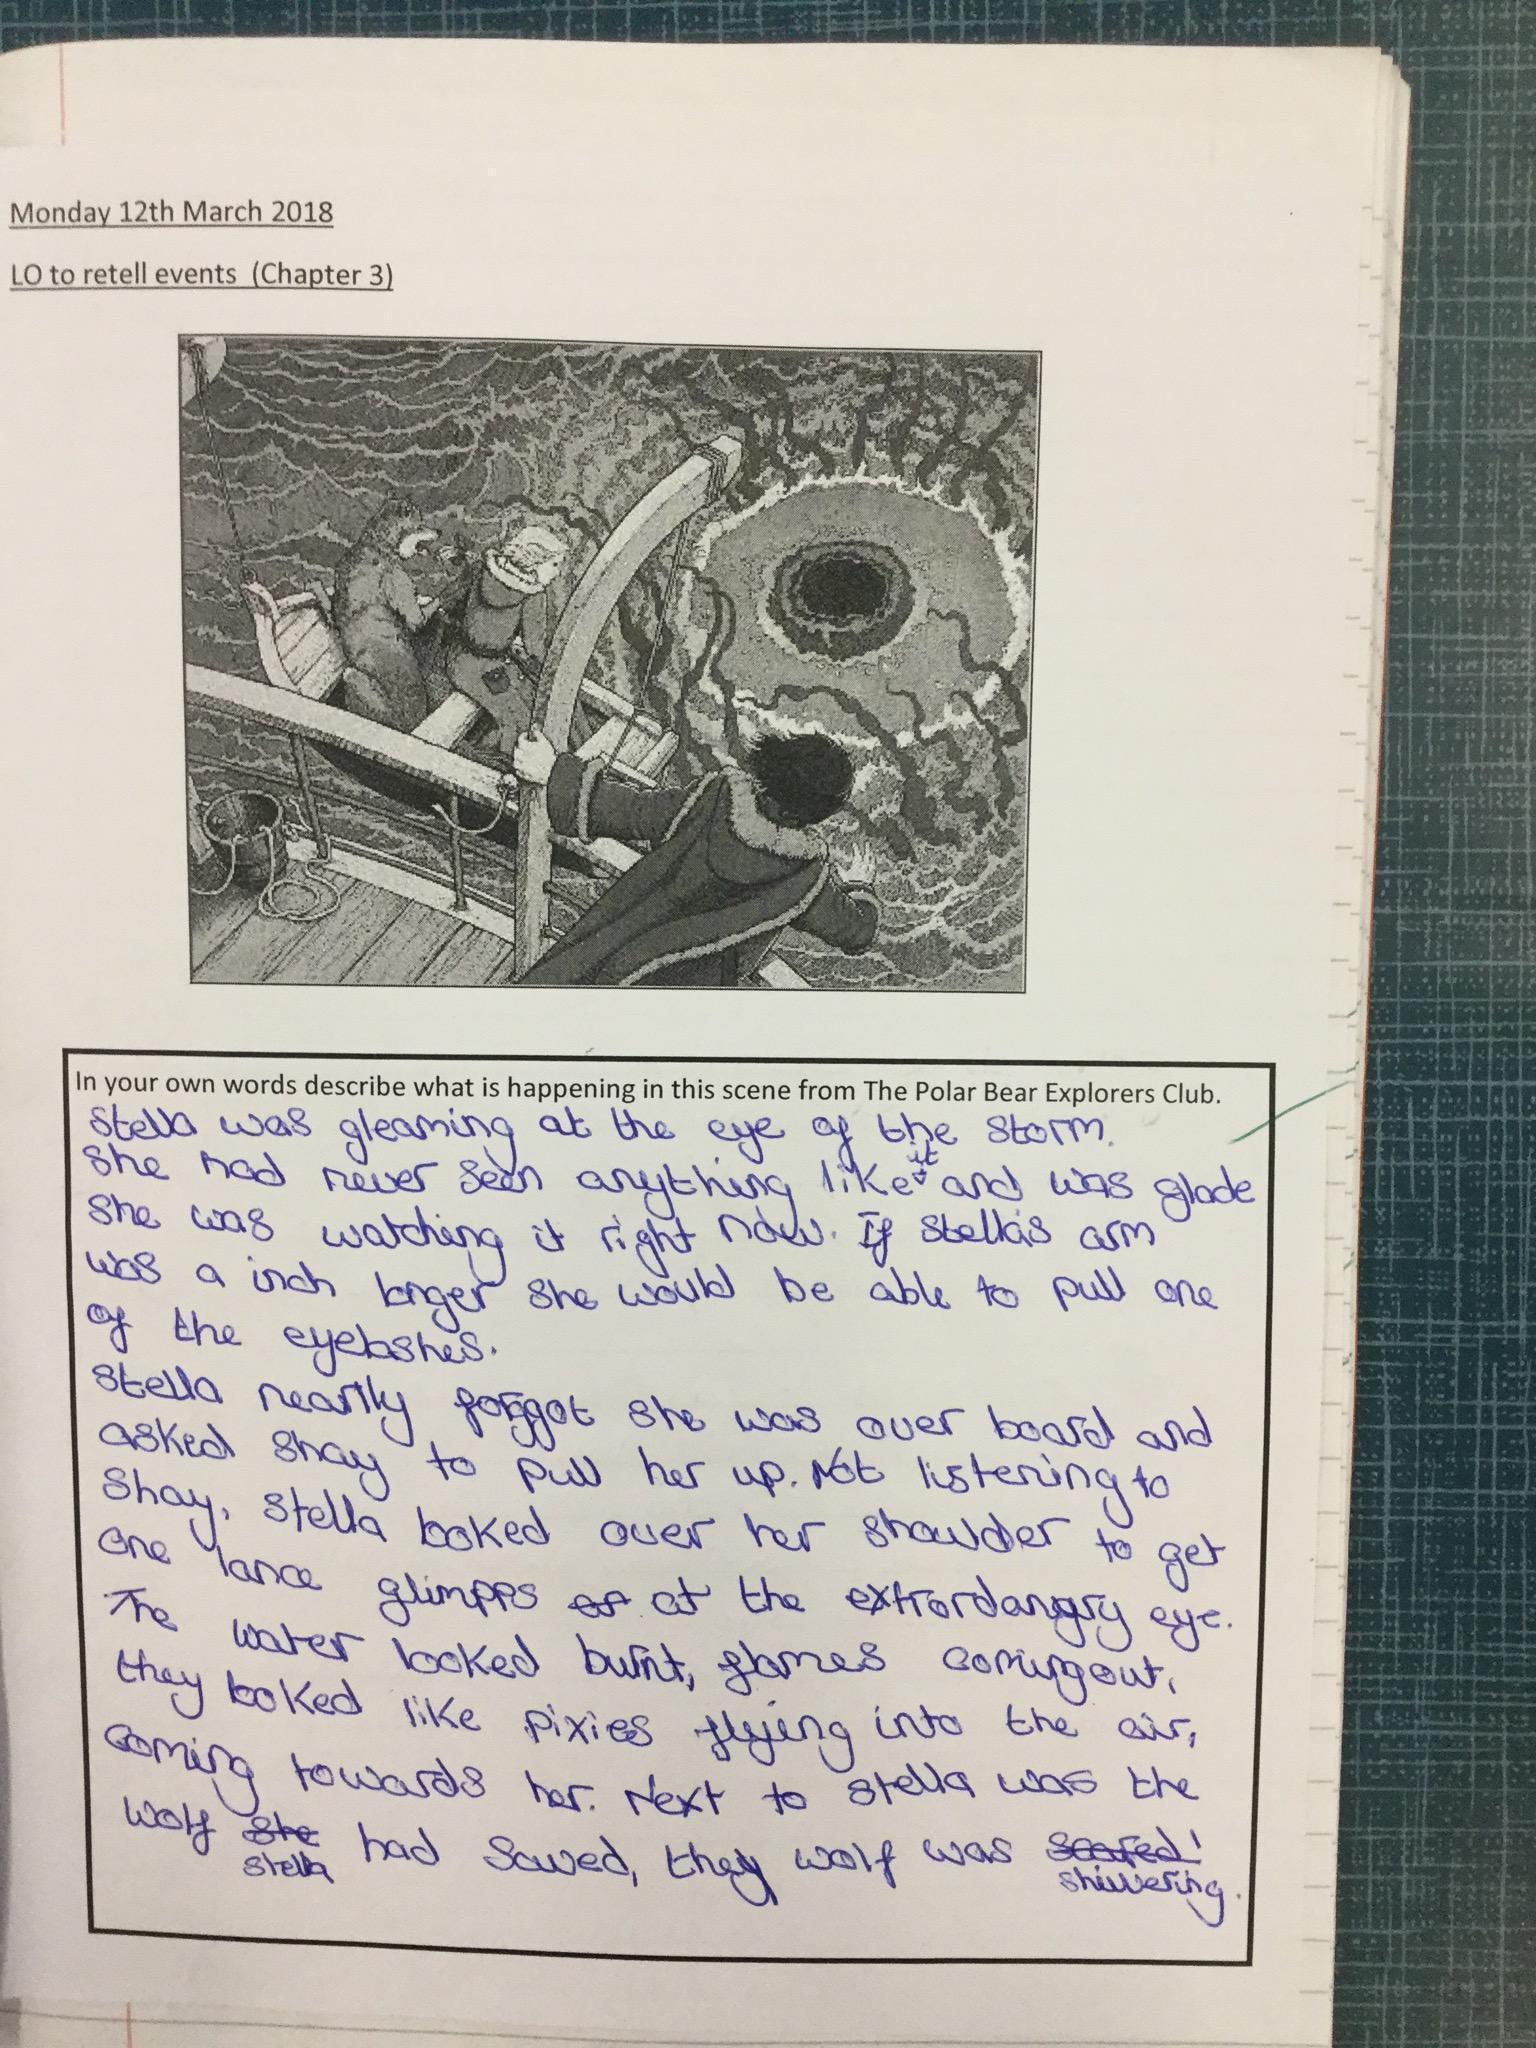 Monday 12th March 2018
LO to retell events (Chapter 3)
In your own words describe what is happening in this scene from The Polar Bear Explorers Club.
Stella was gleaming at the eye of the storm.
She had never seen anything like it and was glade
she was watching it right now. If Stella's arm
was a inch longer she would be able to pull one
of the eyelashes.
Stella neartly forggot she was over board and
asked Shay to pull her up. Not listening to
Shay, Stella looked over her shoulder to get
one lance glimpps of at the extrordangry eye.
The water looked burnt, flames coming out,
they looked like pixies flying into the air,
coming towards her. Next to Stella was the
wolf she had saved, they wolf was scared!
stella shivvering.